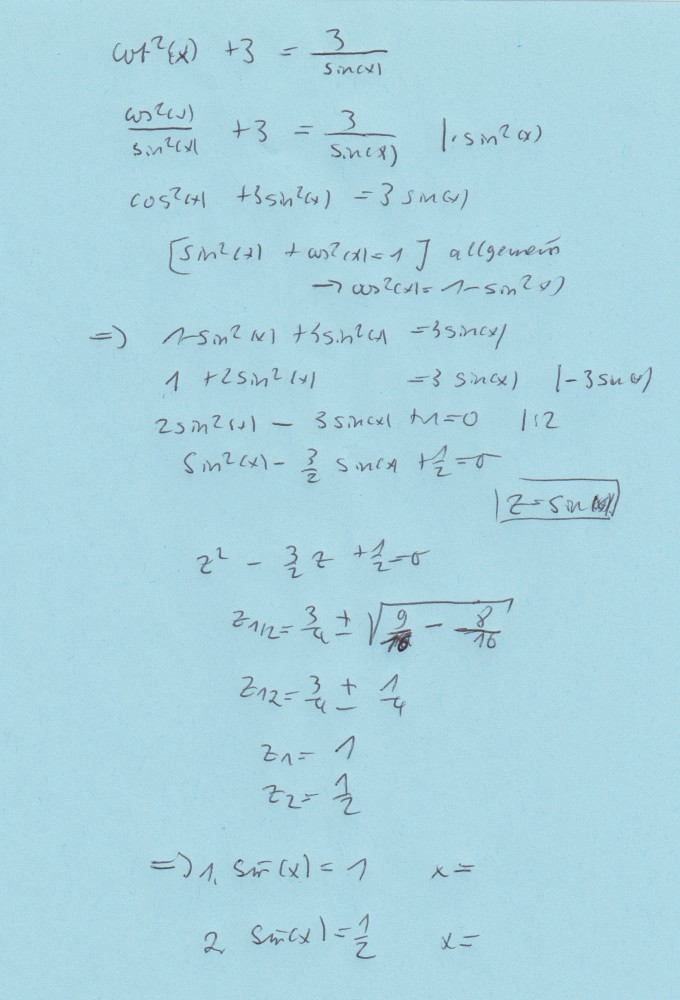 cot²(x) +3 = 3/sin(x)
cos²(x)/sin²(x) +3 = 3/sin(x) |·sin²(x)
cos²(x) +3sin²(x) = 3 sin(x)
[sin²(x) + cos²(x) = 1] allgemein
→ cos²(x) = 1-sin²(x)
=> 1-sin²(x) +3sin²(x) = 3sin(x)
1 +2sin²(x) = 3 sin(x) |-3sin(x)
2sin²(x) - 3sin(x) +1=0 |:2
sin²(x) - 3/2 sin(x) +1/2=0
|z=sin(x)|
z² - 3/2 z +1/2=0
z1/2= 3/4 ± √(9/16 - 8/16)
z12= 3/4 ± 1/4
z1= 1
z2= 1/2
=> 1. sin(x) = 1 x=
2. sin(x) = 1/2 x=